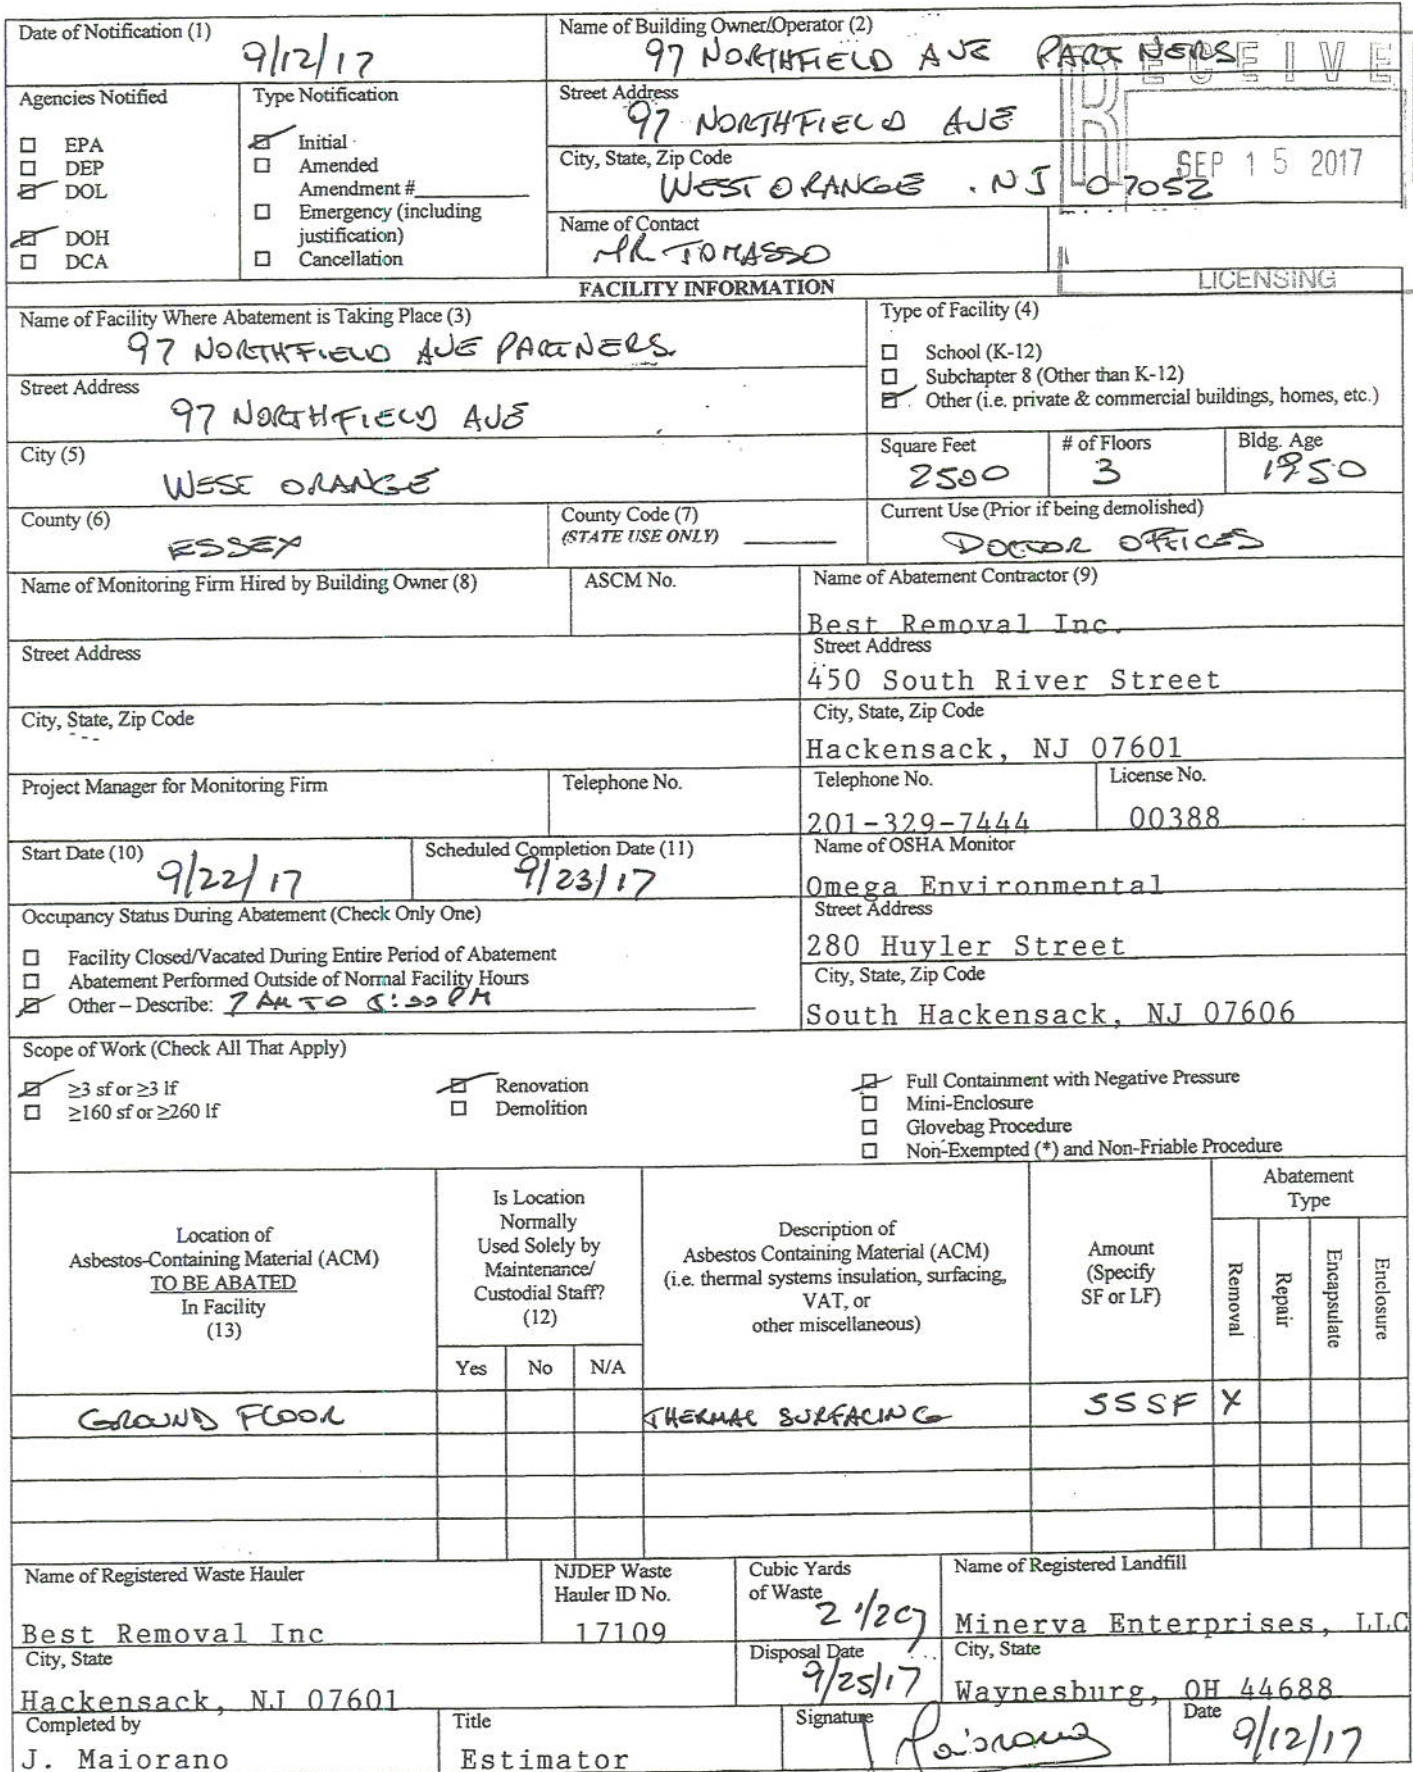 Date of Notification (1)
9/12/17
Name of Building Owner/Operator (2)
97 NORTHFIELD AVE PARTNERS
RECEIVE
Agencies Notified
☐ EPA
☐ DEP
☑ DOL
☑ DOH
☐ DCA
Type Notification
☑ Initial
☐ Amended
Amendment #
☐ Emergency (including
justification)
☐ Cancellation
Street Address
97 NORTHFIELD AVE
City, State, Zip Code
WEST ORANGE . NJ 07052
SEP 15 2017
Name of Contact
MR TOMASSO
LICENSING
FACILITY INFORMATION
Name of Facility Where Abatement is Taking Place (3)
97 NORTHFIELD AVE PARTNERS.
Type of Facility (4)
☐ School (K-12)
☐ Subchapter 8 (Other than K-12)
☑ Other (i.e. private & commercial buildings, homes, etc.)
Street Address
97 NORTHFIELD AVE
City (5)
WEST ORANGE
Square Feet
2500
# of Floors
3
Bldg. Age
1950
County (6)
ESSEX
County Code (7)
(STATE USE ONLY)
Current Use (Prior if being demolished)
DOCTOR OFFICES
Name of Monitoring Firm Hired by Building Owner (8)
ASCM No.
Name of Abatement Contractor (9)
Best Removal Inc.
Street Address
Street Address
450 South River Street
City, State, Zip Code
City, State, Zip Code
Hackensack, NJ 07601
Project Manager for Monitoring Firm
Telephone No.
Telephone No.
201-329-7444
License No.
00388
Start Date (10)
9/22/17
Scheduled Completion Date (11)
9/23/17
Name of OSHA Monitor
Omega Environmental
Occupancy Status During Abatement (Check Only One)
☐ Facility Closed/Vacated During Entire Period of Abatement
☐ Abatement Performed Outside of Normal Facility Hours
☑ Other – Describe: 7 AM TO 5:00 PM
Street Address
280 Huyler Street
City, State, Zip Code
South Hackensack, NJ 07606
Scope of Work (Check All That Apply)
☑ ≥3 sf or ≥3 lf
☐ ≥160 sf or ≥260 lf
☑ Renovation
☐ Demolition
☑ Full Containment with Negative Pressure
☐ Mini-Enclosure
☐ Glovebag Procedure
☐ Non-Exempted (*) and Non-Friable Procedure
Location of
Asbestos-Containing Material (ACM)
TO BE ABATED
In Facility
(13)
Is Location
Normally
Used Solely by
Maintenance/
Custodial Staff?
(12)
Yes No N/A
Description of
Asbestos Containing Material (ACM)
(i.e. thermal systems insulation, surfacing,
VAT, or
other miscellaneous)
Amount
(Specify
SF or LF)
Abatement
Type
Removal
Repair
Encapsulate
Enclosure
GROUND FLOOR THERMAL SURFACING 55 SF X
Name of Registered Waste Hauler
Best Removal Inc
NJDEP Waste
Hauler ID No.
17109
Cubic Yards
of Waste
2 1/2 CY
Name of Registered Landfill
Minerva Enterprises, LLC
City, State
Hackensack, NJ 07601
Disposal Date
9/25/17
City, State
Waynesburg, OH 44688
Completed by
J. Maiorano
Title
Estimator
Signature
Maiorano
Date
9/12/17